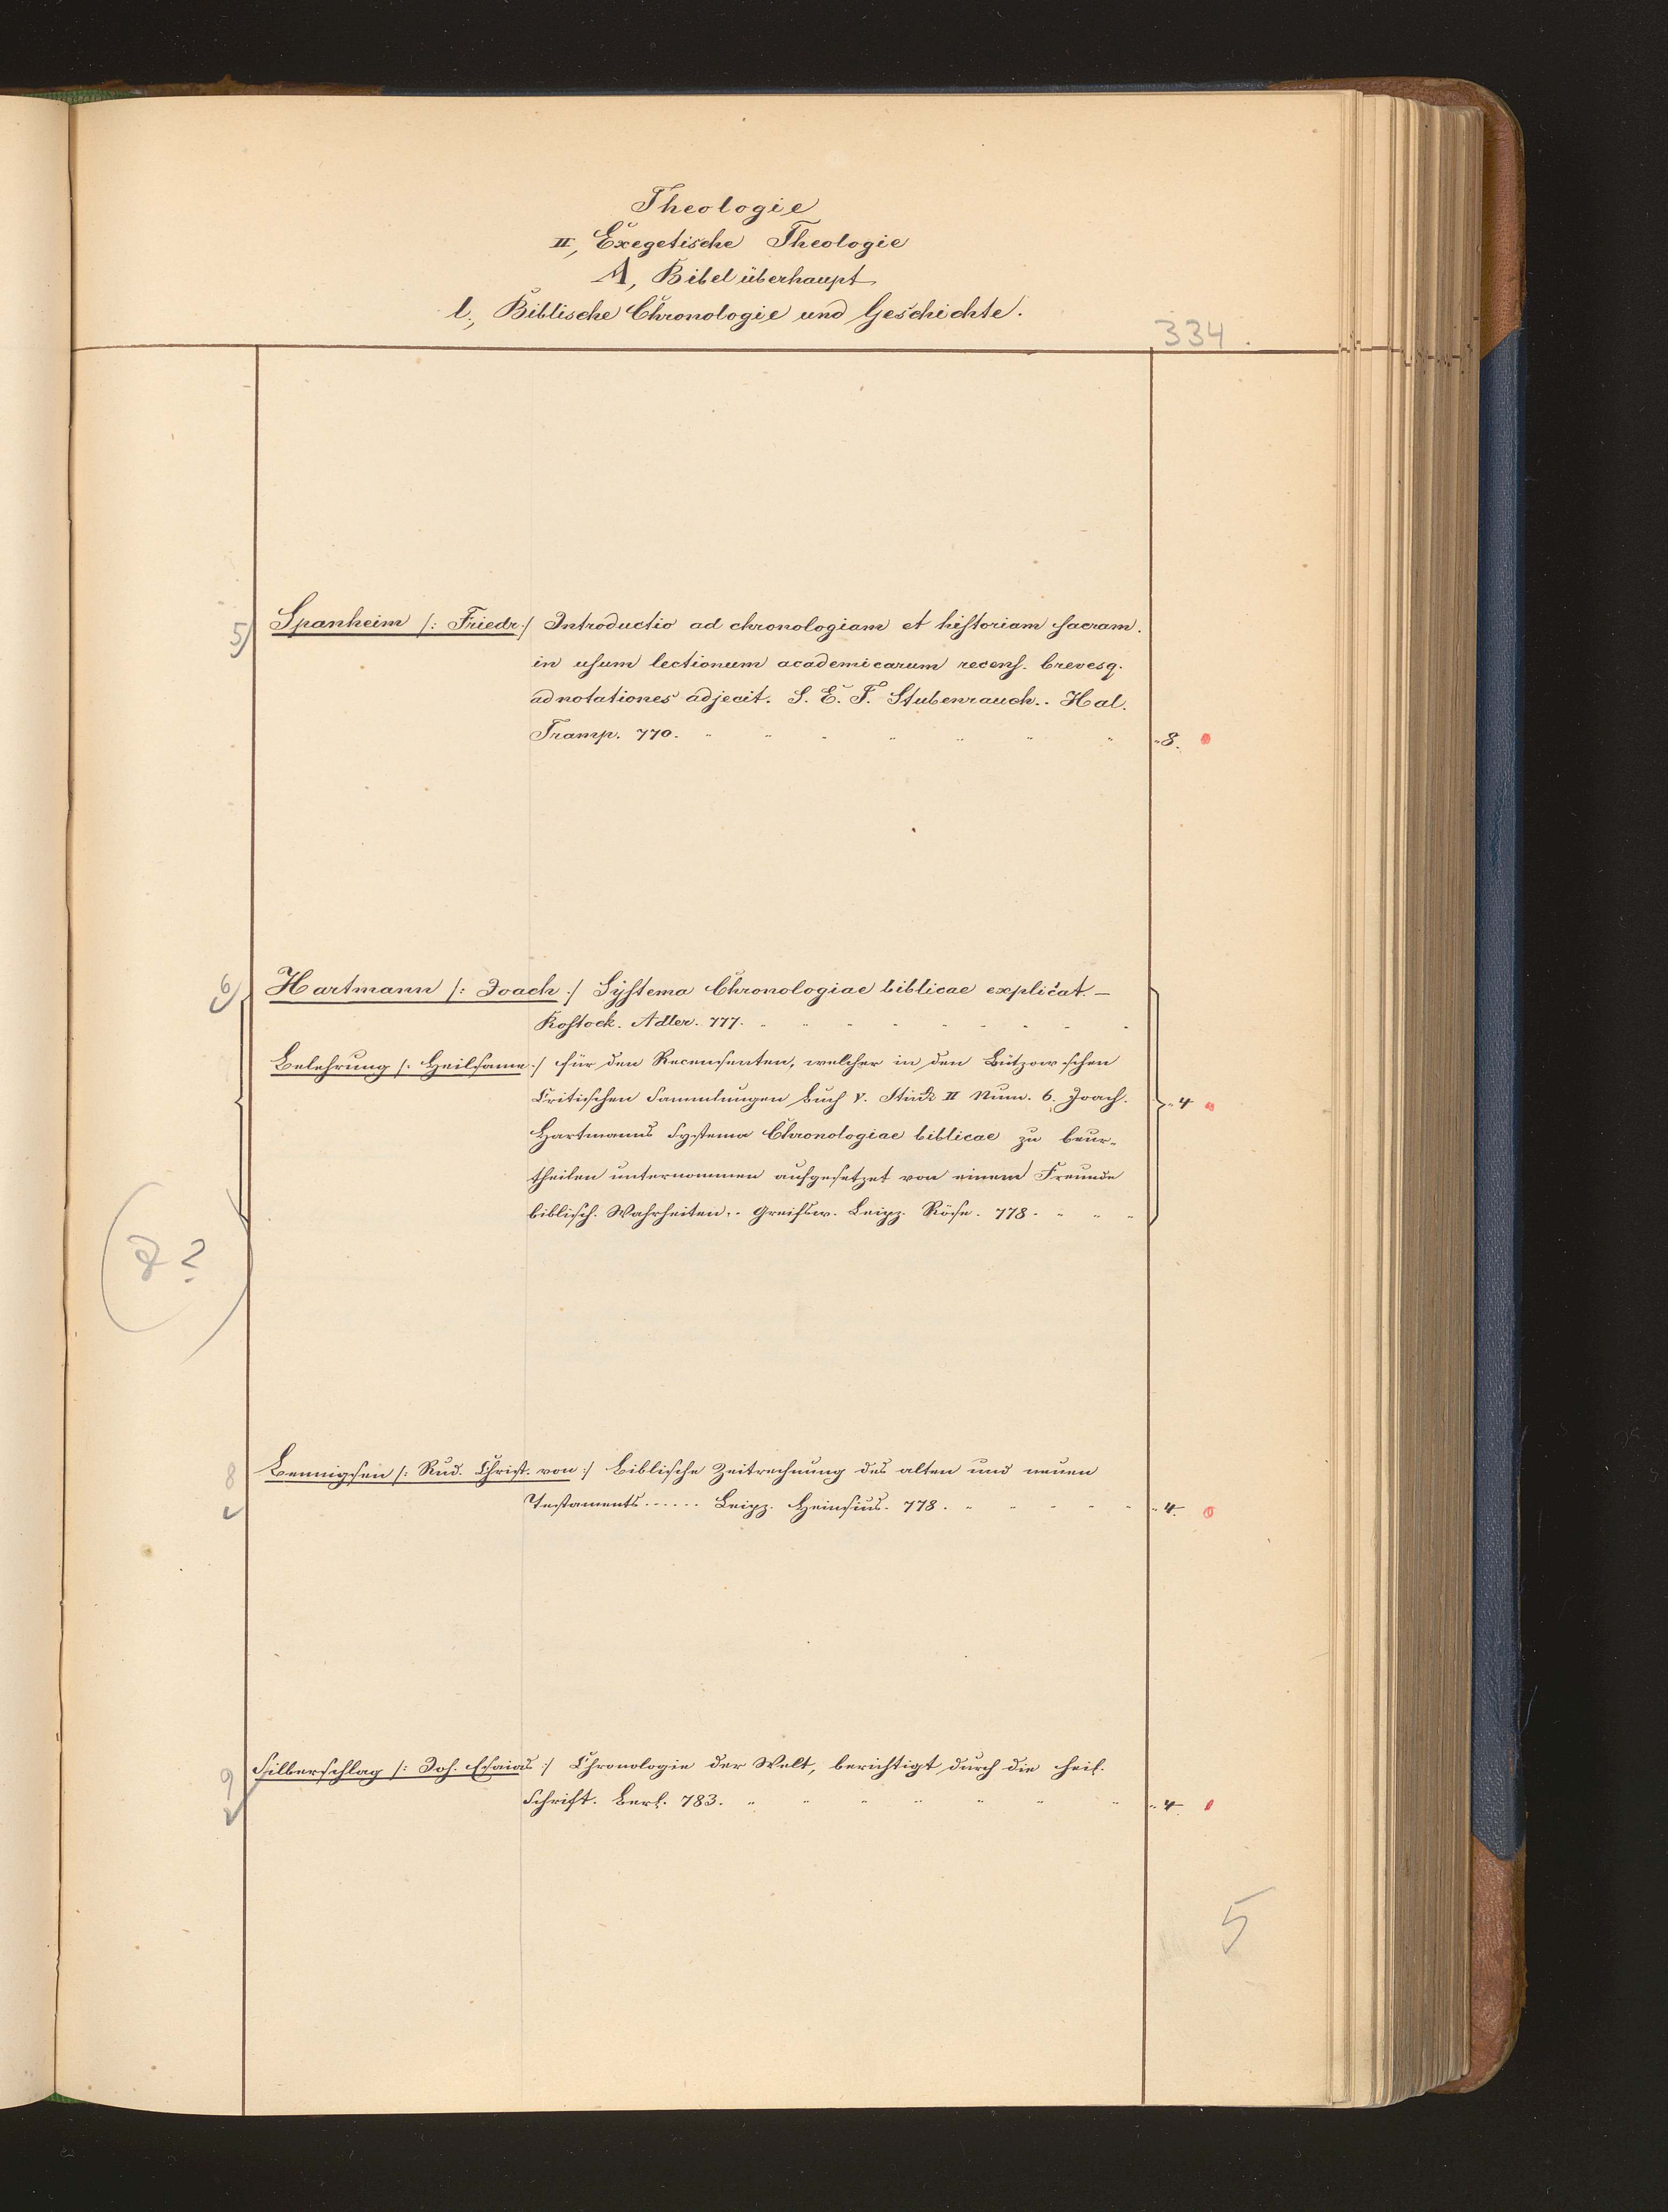 Theologie
II, Exegetische Theologie
A, Bibel überhaupt
l., Biblische Chronologie und Geschichte.
334.
5) Spanheim /: Friedr :/ Introductio ad chronologiam et historiam sacram.
in usum lectionum academicarum recens. brevesq.
adnotationes adjecit. S. E. T. Stubenrauch.. Hal.
Tramp. 770. " " " " " " " " 8.
6) Hartmann /: Joach :/ Systema Chronologiae biblicae explicat. —
Rostock. Adler. 777. " " " " " " " "
Belehrung /: Heilsame :/ für den Recensenten, welcher in den Bützowschen
Critischen Sammlungen Buch V. Stück II Num. 6. Joach. " 4
Hartmanns Systema Chronologiae biblicae zu beur-
theilen unternommen aufgesetzet von einem Freunde
biblisch. Wahrheiten.. Greifsw. Leipz. Röse. 778. " " "
(7?)
8 Bennigsen /: Rud. Christ. von :/ biblische Zeitrechnung des alten und neuen
Testaments ...... Leipz. Heinsius. 778. " " " " " " 4.
9 Silberschlag /: Joh. Esaias :/ Chronologie der Welt, berichtigt durch die heil.
Schrift. Berl. 783. " " " " " " " " 4.
5